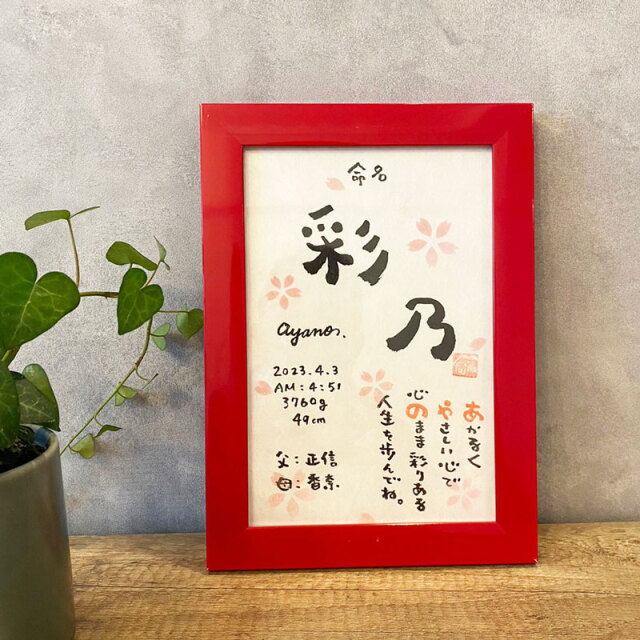 命名
彩乃
ayano.
2023.4.3
AM:4:51
3760g
49cm
父:正信
母:香奈
あかるく
やさしい心で
心のまま彩りある
人生を歩んでね。